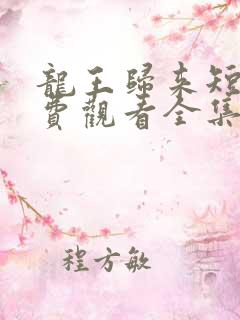 龍王歸來短
費觀看全集
程方敏